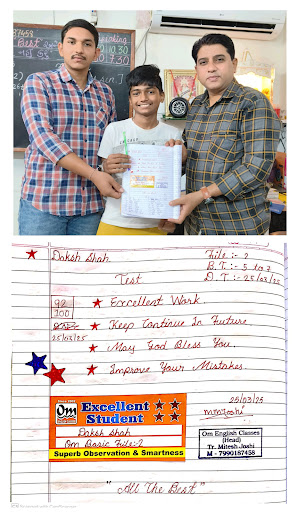 97458
Best
10.30
7.30
Daksh Shah
File :- 2
B.T :- 5 to 7
D.T :- 25/03/25
Test
92
100
25/03/25
★ Excellent Work
★ Keep Continue In Future
★ May God Bless You
★ Improve Your Mistakes.
25/03/25
Om
Excellent ★★
Student ★★
Daksh Shah
Om Basic File:-2
Superb Observation & Smartness
Om English Classes
(Head)
Tr. Mitesh Joshi
M - 7990187458
"All The Best"